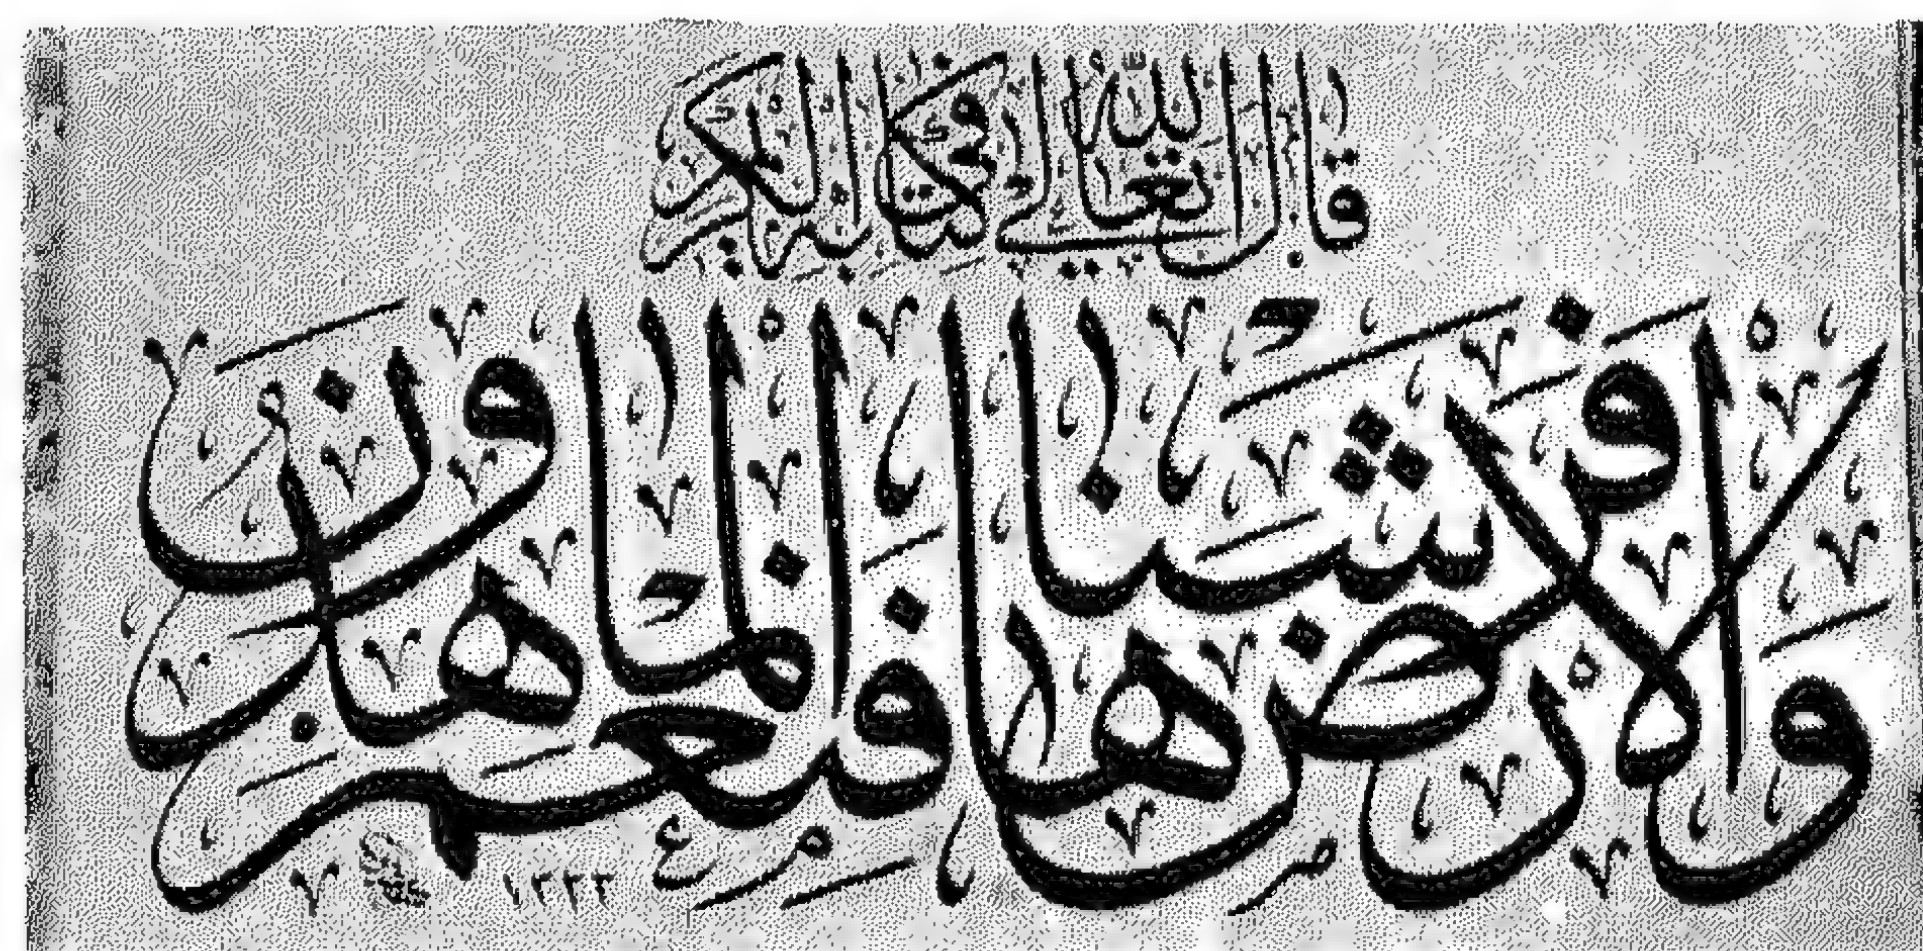 قال الله تعالى في كتابه الكريم
والأرض فرشناها فنعم الماهدون
١٣٣٣